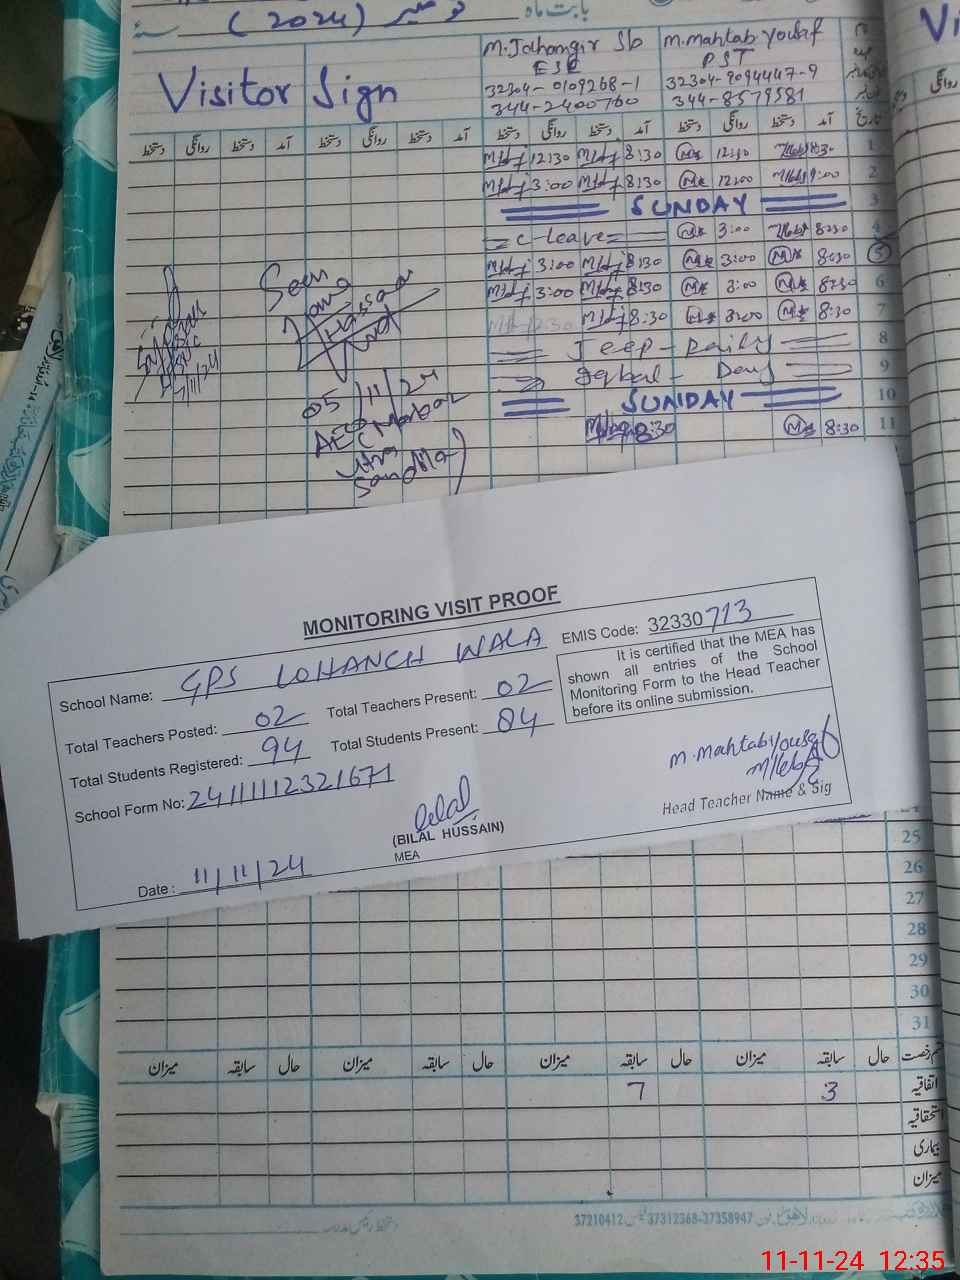 بابت ماہ نومبر (2024) سنہ
Visitor Sign
M. Jahangir Sb
ESE
32304-0109268-1
344-2400760
M. Mahtab Yousaf
PST
32304-9094447-9
344-8579581
دستخط روانگی دستخط آمد دستخط روانگی دستخط آمد دستخط روانگی دستخط آمد دستخط روانگی دستخط آمد تاریخ
12:30 8:30 12:30 8:30 1
3:00 8:30 12:00 9:00 2
SUNDAY 3
C-Leave 3:00 8:30 4
3:00 8:30 3:00 8:30 5
3:00 8:30 3:00 8:30 6
12:30 8:30 3:00 8:30 7
Jeep-Raily 8
Iqbal-Day 9
SUNDAY 10
8:30 8:30 11
Seen
05/11/24
MONITORING VISIT PROOF
School Name: GPS LOHANCH WALA EMIS Code: 32330713
Total Teachers Posted: 02 Total Teachers Present: 02
Total Students Registered: 94 Total Students Present: 84
School Form No: 24111112321671
It is certified that the MEA has
shown all entries of the School
Monitoring Form to the Head Teacher
before its online submission.
M. Mahtab Yousaf
Head Teacher Name & Sig
Bilal
(BILAL HUSSAIN)
MEA
Date: 11/11/24
25
26
27
28
29
30
31
میزان سابقہ حال میزان سابقہ حال میزان سابقہ حال میزان سابقہ حال قسم رخصت
7 3 اتفاقیہ
استحقاقیہ
بیماری
میزان
37210412 37312368-37358947
11-11-24 12:35